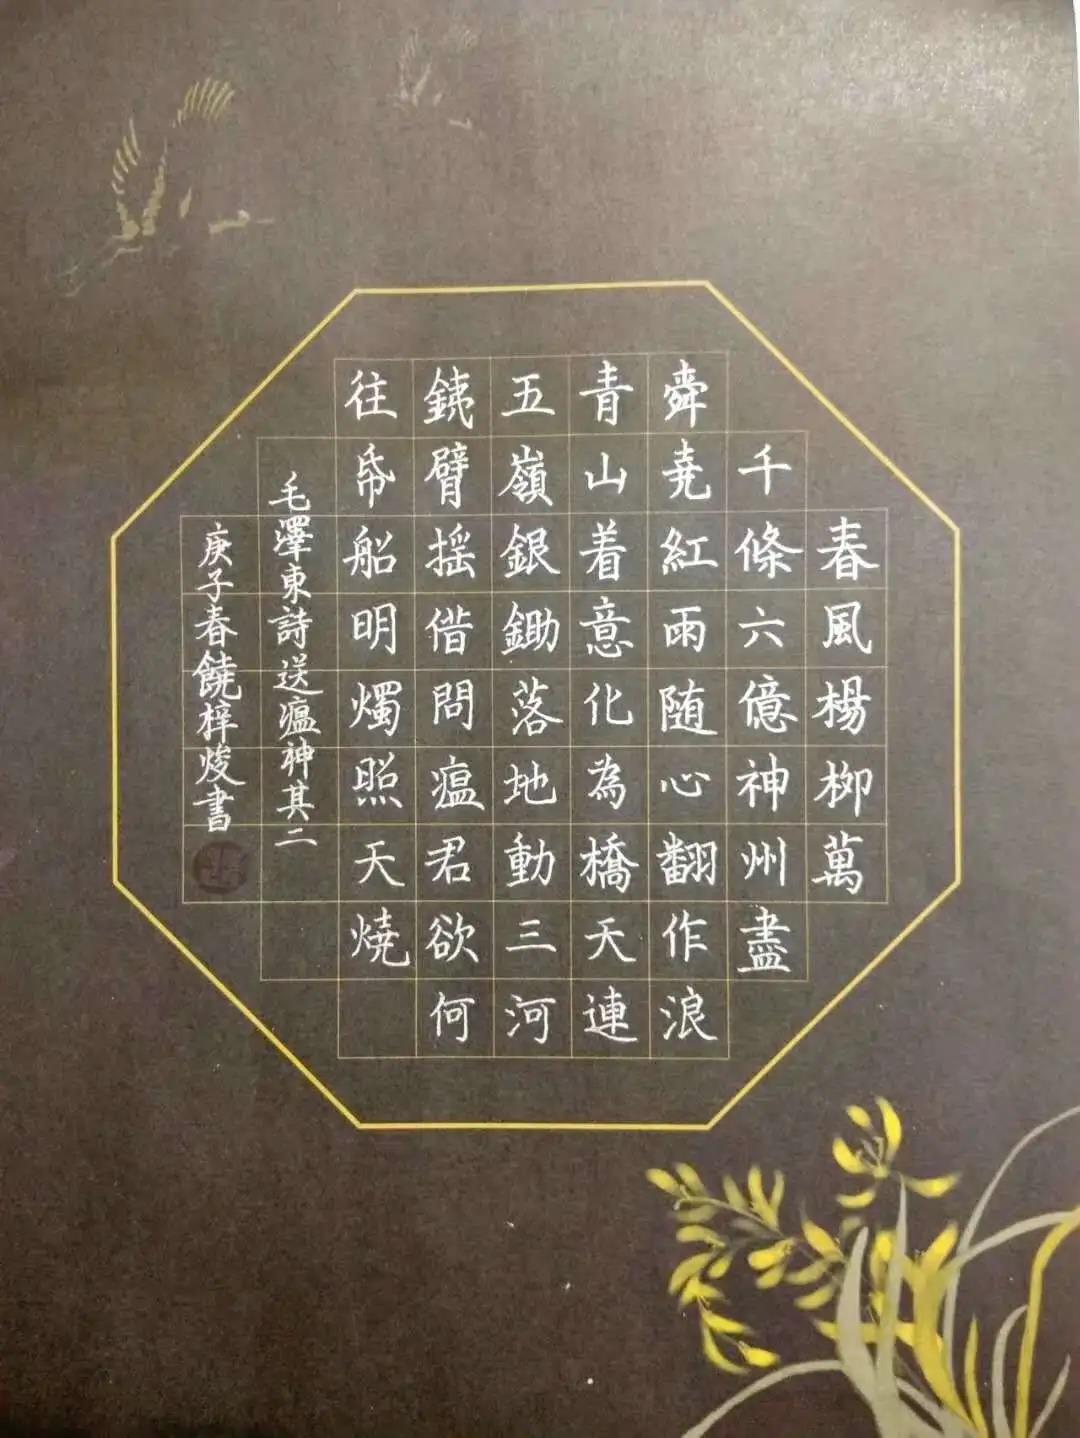 春風楊柳萬
千條六億神州盡
舜尭紅雨随心翻作浪
青山着意化為橋天連
五嶺銀鋤落地動三河
銕臂摇借問瘟君欲何
往帋船明燭照天燒
毛澤東詩送瘟神其二
庚子春饒梓焌書